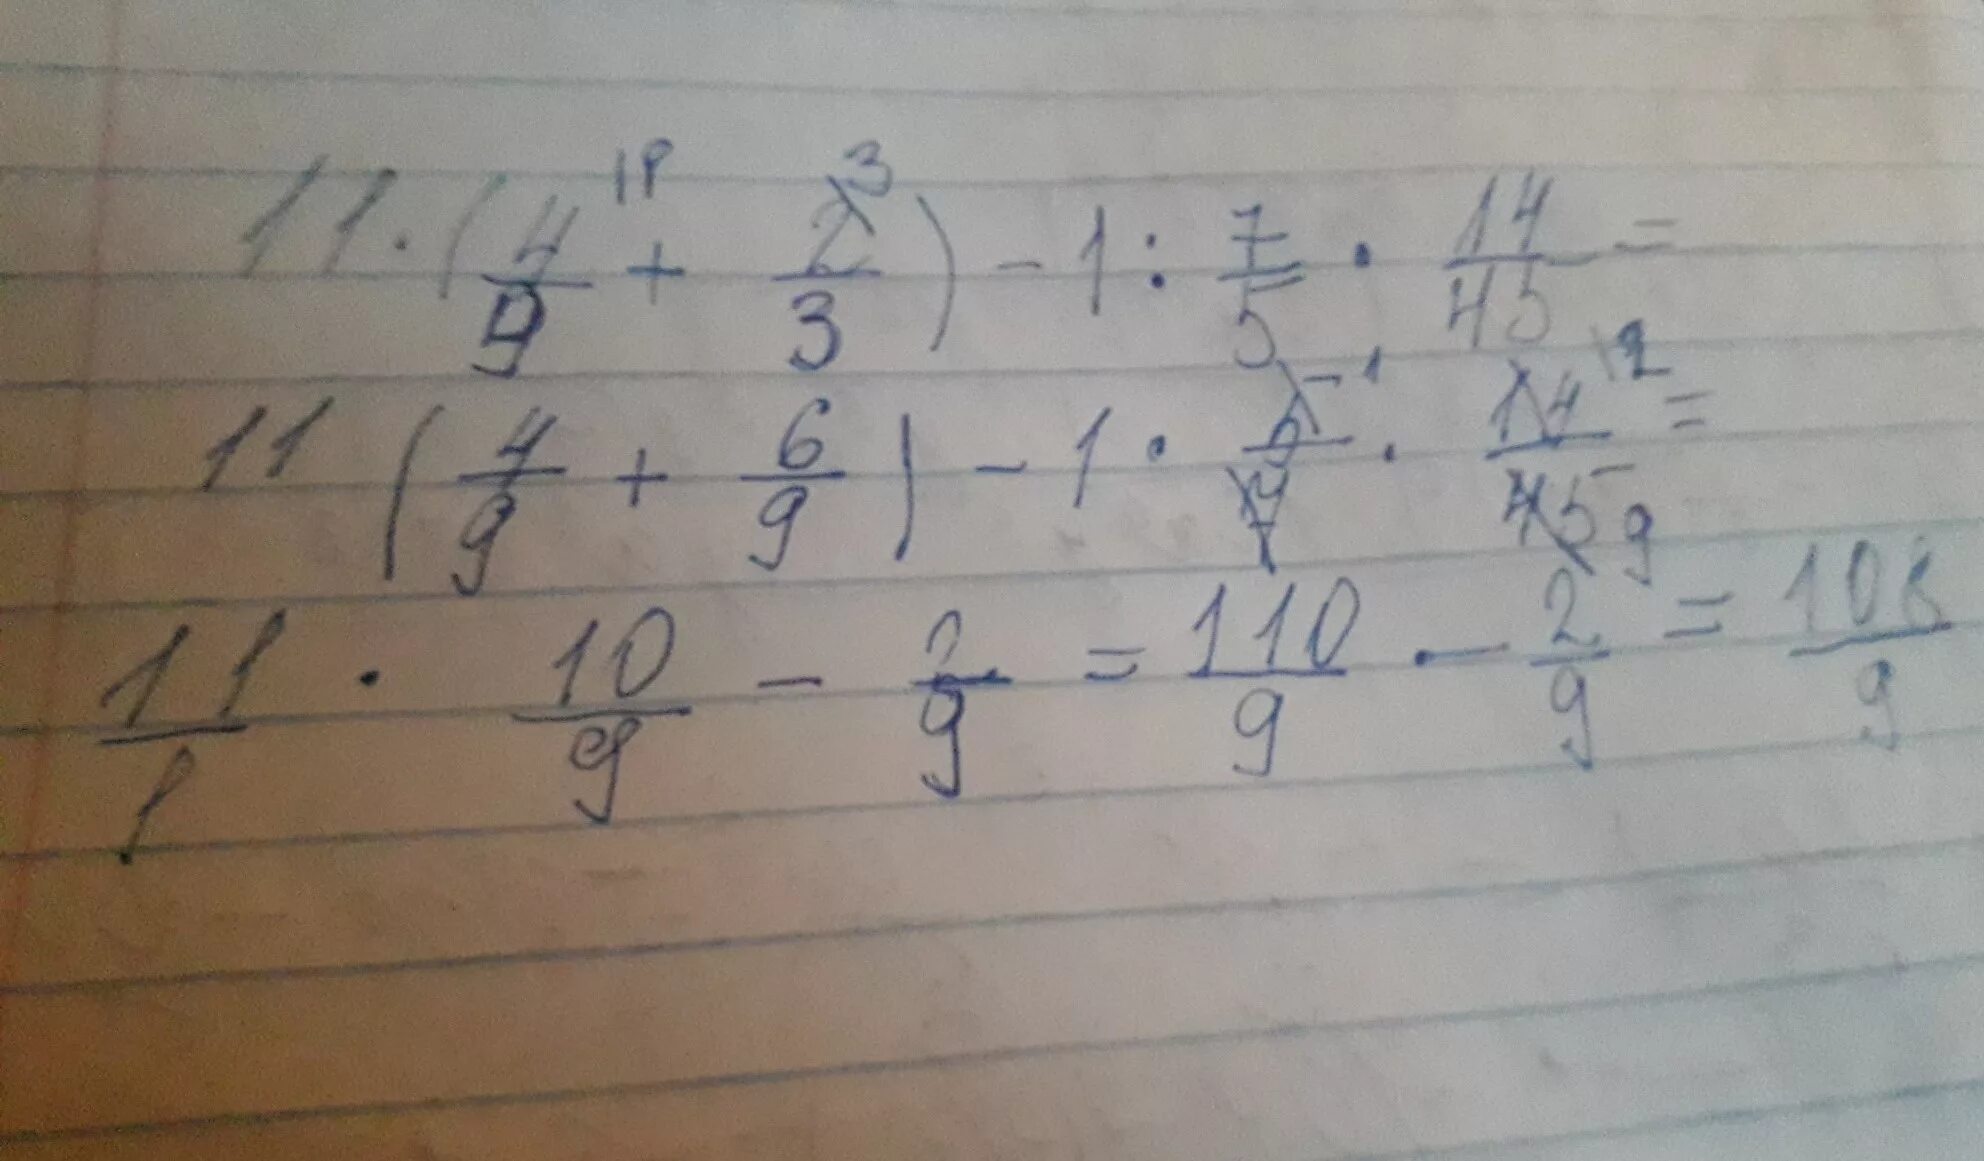 11 · (4/9 + 2/3 \3) - 1 : 7/5 · 14/45 =
11 (4/9 + 6/9) - 1 · 5/7 · 14/45 =
11/1 · 10/9 - 2/9 = 110/9 - 2/9 = 108/9